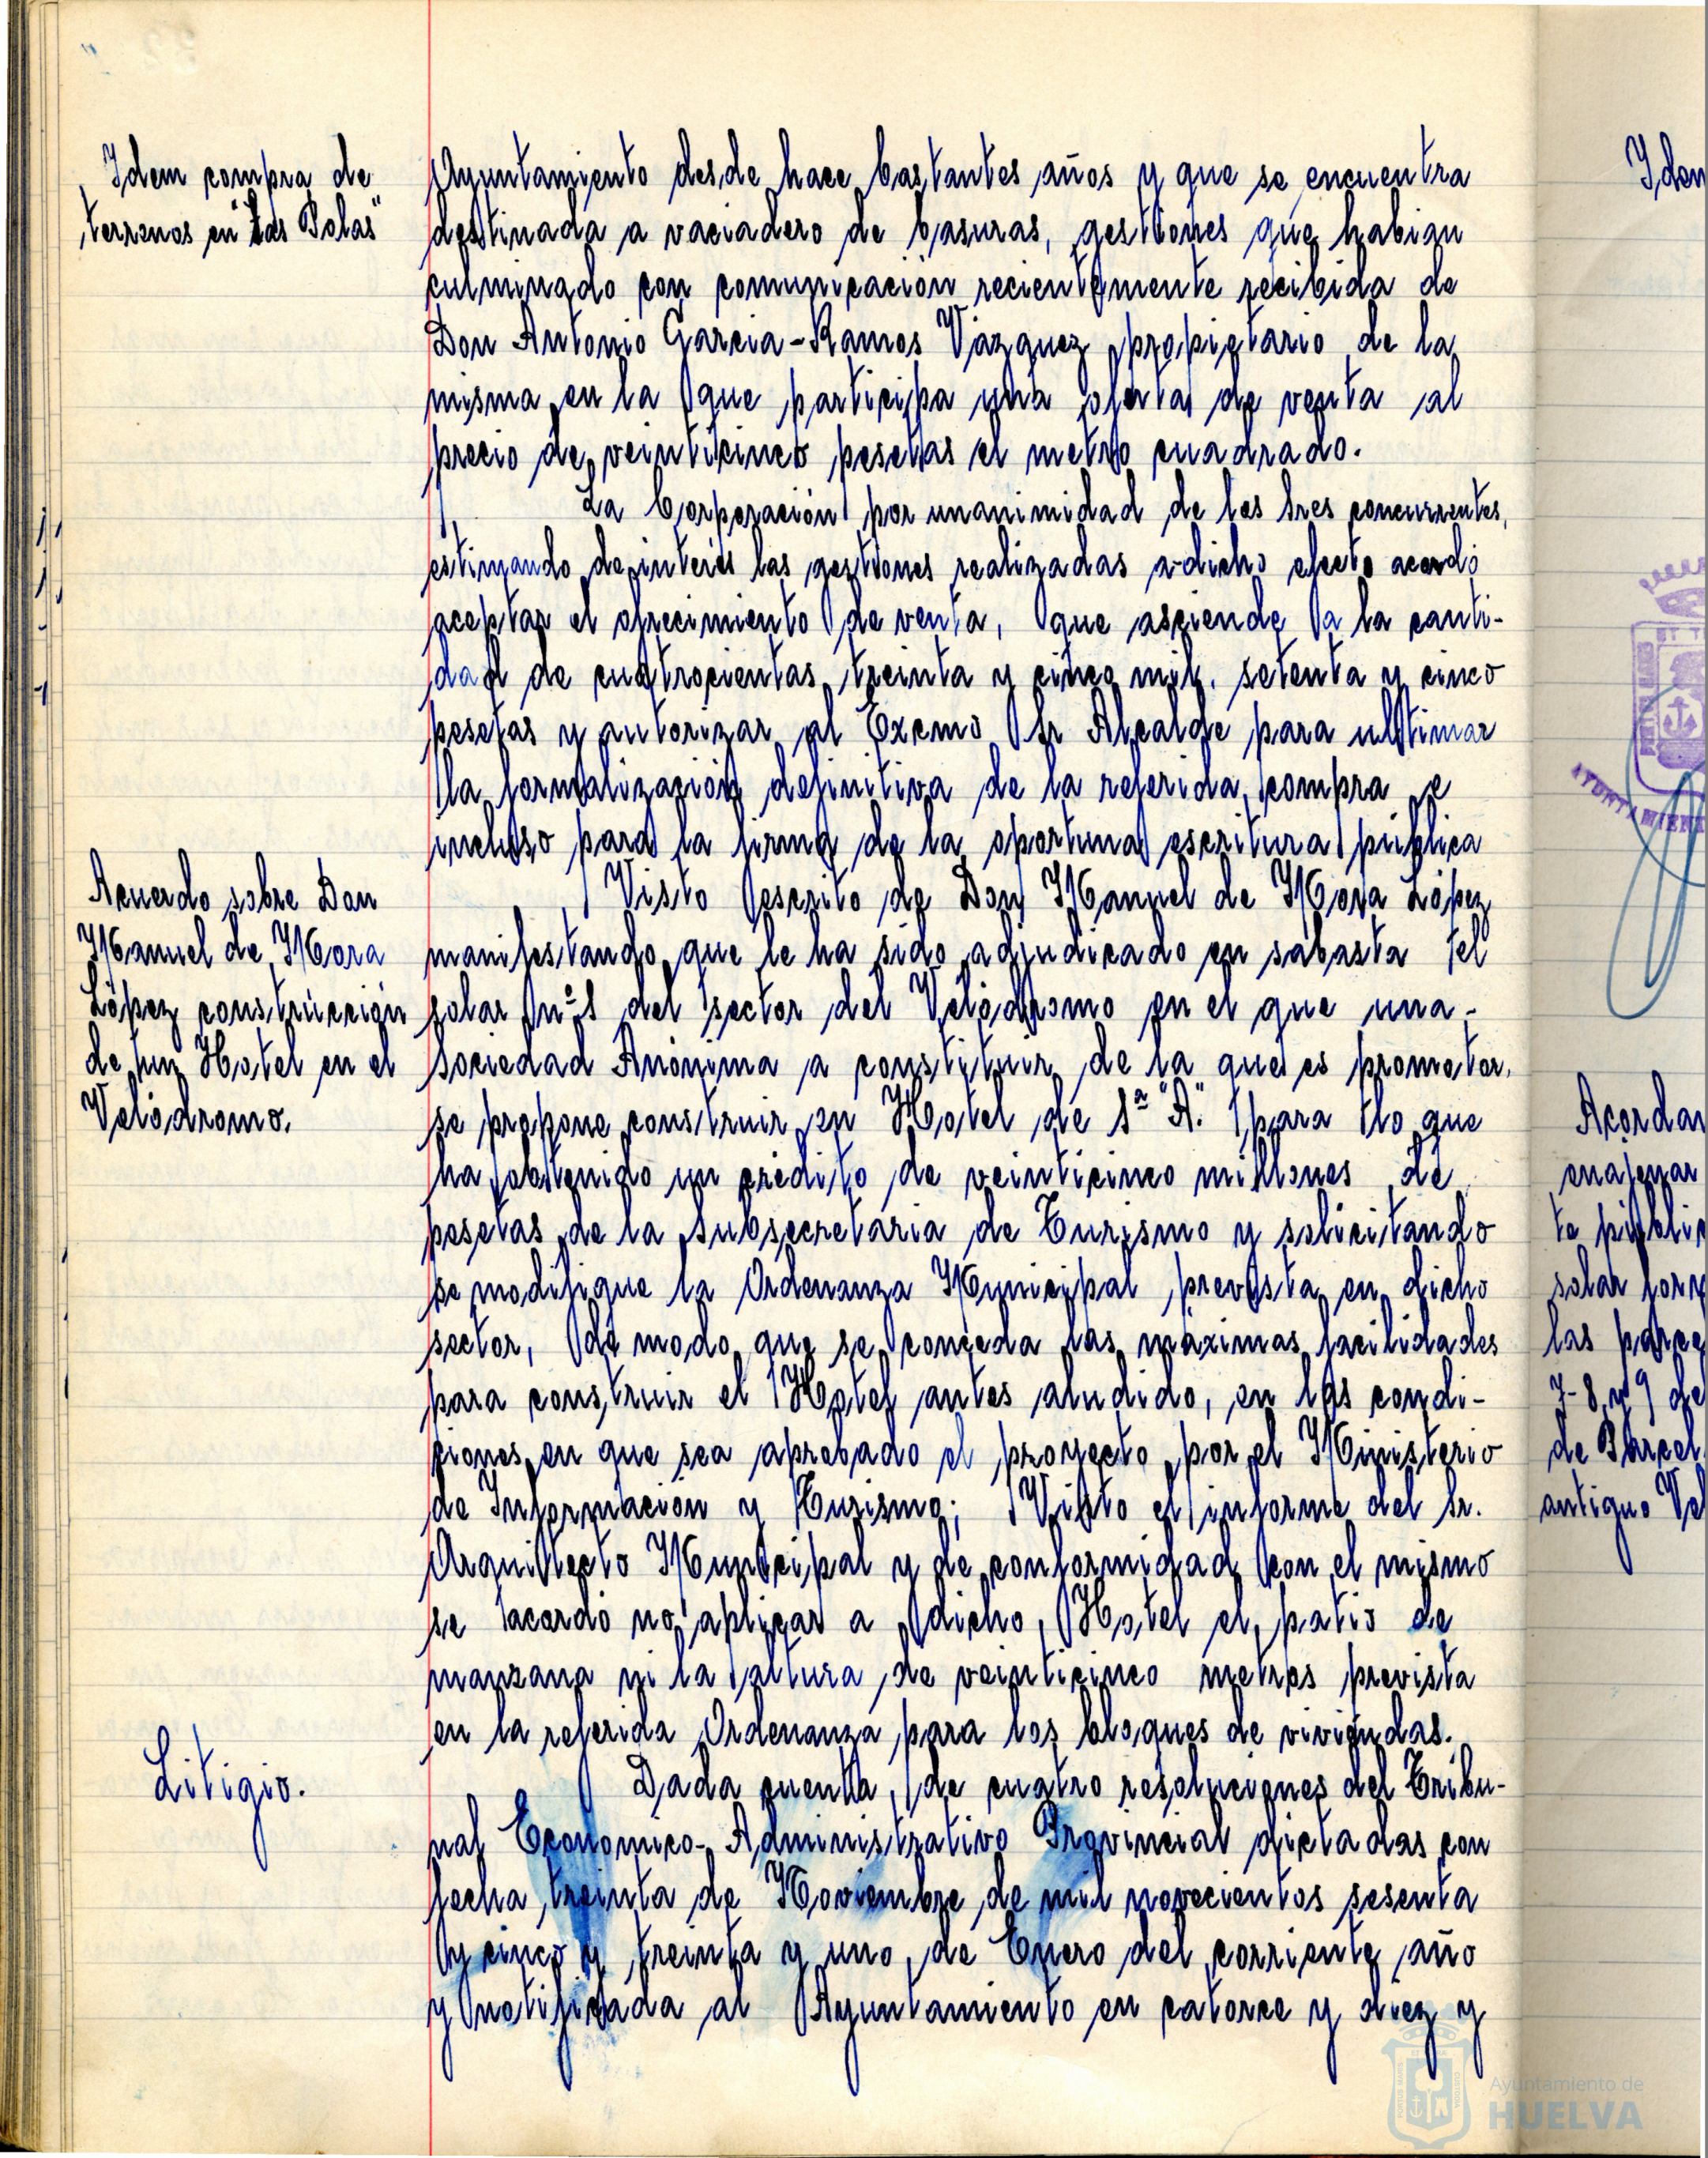 Idem compra de
terrenos en "Las Bolas"
Ayuntamiento desde hace bastantes años y que se encuentra
destinada a vaciadero de basuras, gestiones que habian
culminado con comunicación recientemente recibida de
Don Antonio Garcia-Ramos Vázquez propietario de la
misma en la que participa una oferta de venta al
precio de veinticinco pesetas el metro cuadrado.
La Corporación por unanimidad de los Sres concurrentes,
estimando de interés las gestiones realizadas a dicho efecto acordó
aceptar el ofrecimiento de venta, que asciende a la canti-
dad de cuatrocientas treinta y cinco mil setenta y cinco
pesetas y autorizar al Excmo Sr Alcalde para ultimar
la formalización definitiva de la referida compra e
incluso para la firma de la oportuna escritura pública
Acuerdo sobre Don
Manuel de Mora
López construcción
de un Hotel en el
Velódromo.
Visto escrito de Don Manuel de Mora López
manifestando que le ha sido adjudicado en subasta el
solar nº 1 del sector del Velódromo en el que una
Sociedad Anónima a constituir de la que es promotor,
se propone construir un Hotel de 1ª "A" para lo que
ha obtenido un crédito de veinticinco millones de
pesetas de la Subsecretaria de Turismo y solicitando
se modifique la Ordenanza Municipal prevista en dicho
sector, de modo que se conceda las máximas facilidades
para construir el Hotel antes aludido, en las condi-
ciones en que sea aprobado el proyecto por el Ministerio
de Información y Turismo; Visto el informe del Sr.
Arquitecto Municipal y de conformidad con el mismo
se acordó no aplicar a dicho Hotel el patio de
manzana ni la altura de veinticinco metros prevista
en la referida Ordenanza para los bloques de viviendas.
Litigio.
Dada cuenta de cuatro resoluciones del Tribu-
nal Económico-Administrativo Provincial dictadas con
fecha treinta de Noviembre de mil novecientos sesenta
y cinco y treinta y uno de Enero del corriente año
y notificada al Ayuntamiento en catorce y diez y
Acordar
enajenar
solar
las
7-8 y 9 de
de
antiguo
Ayuntamiento de
HUELVA